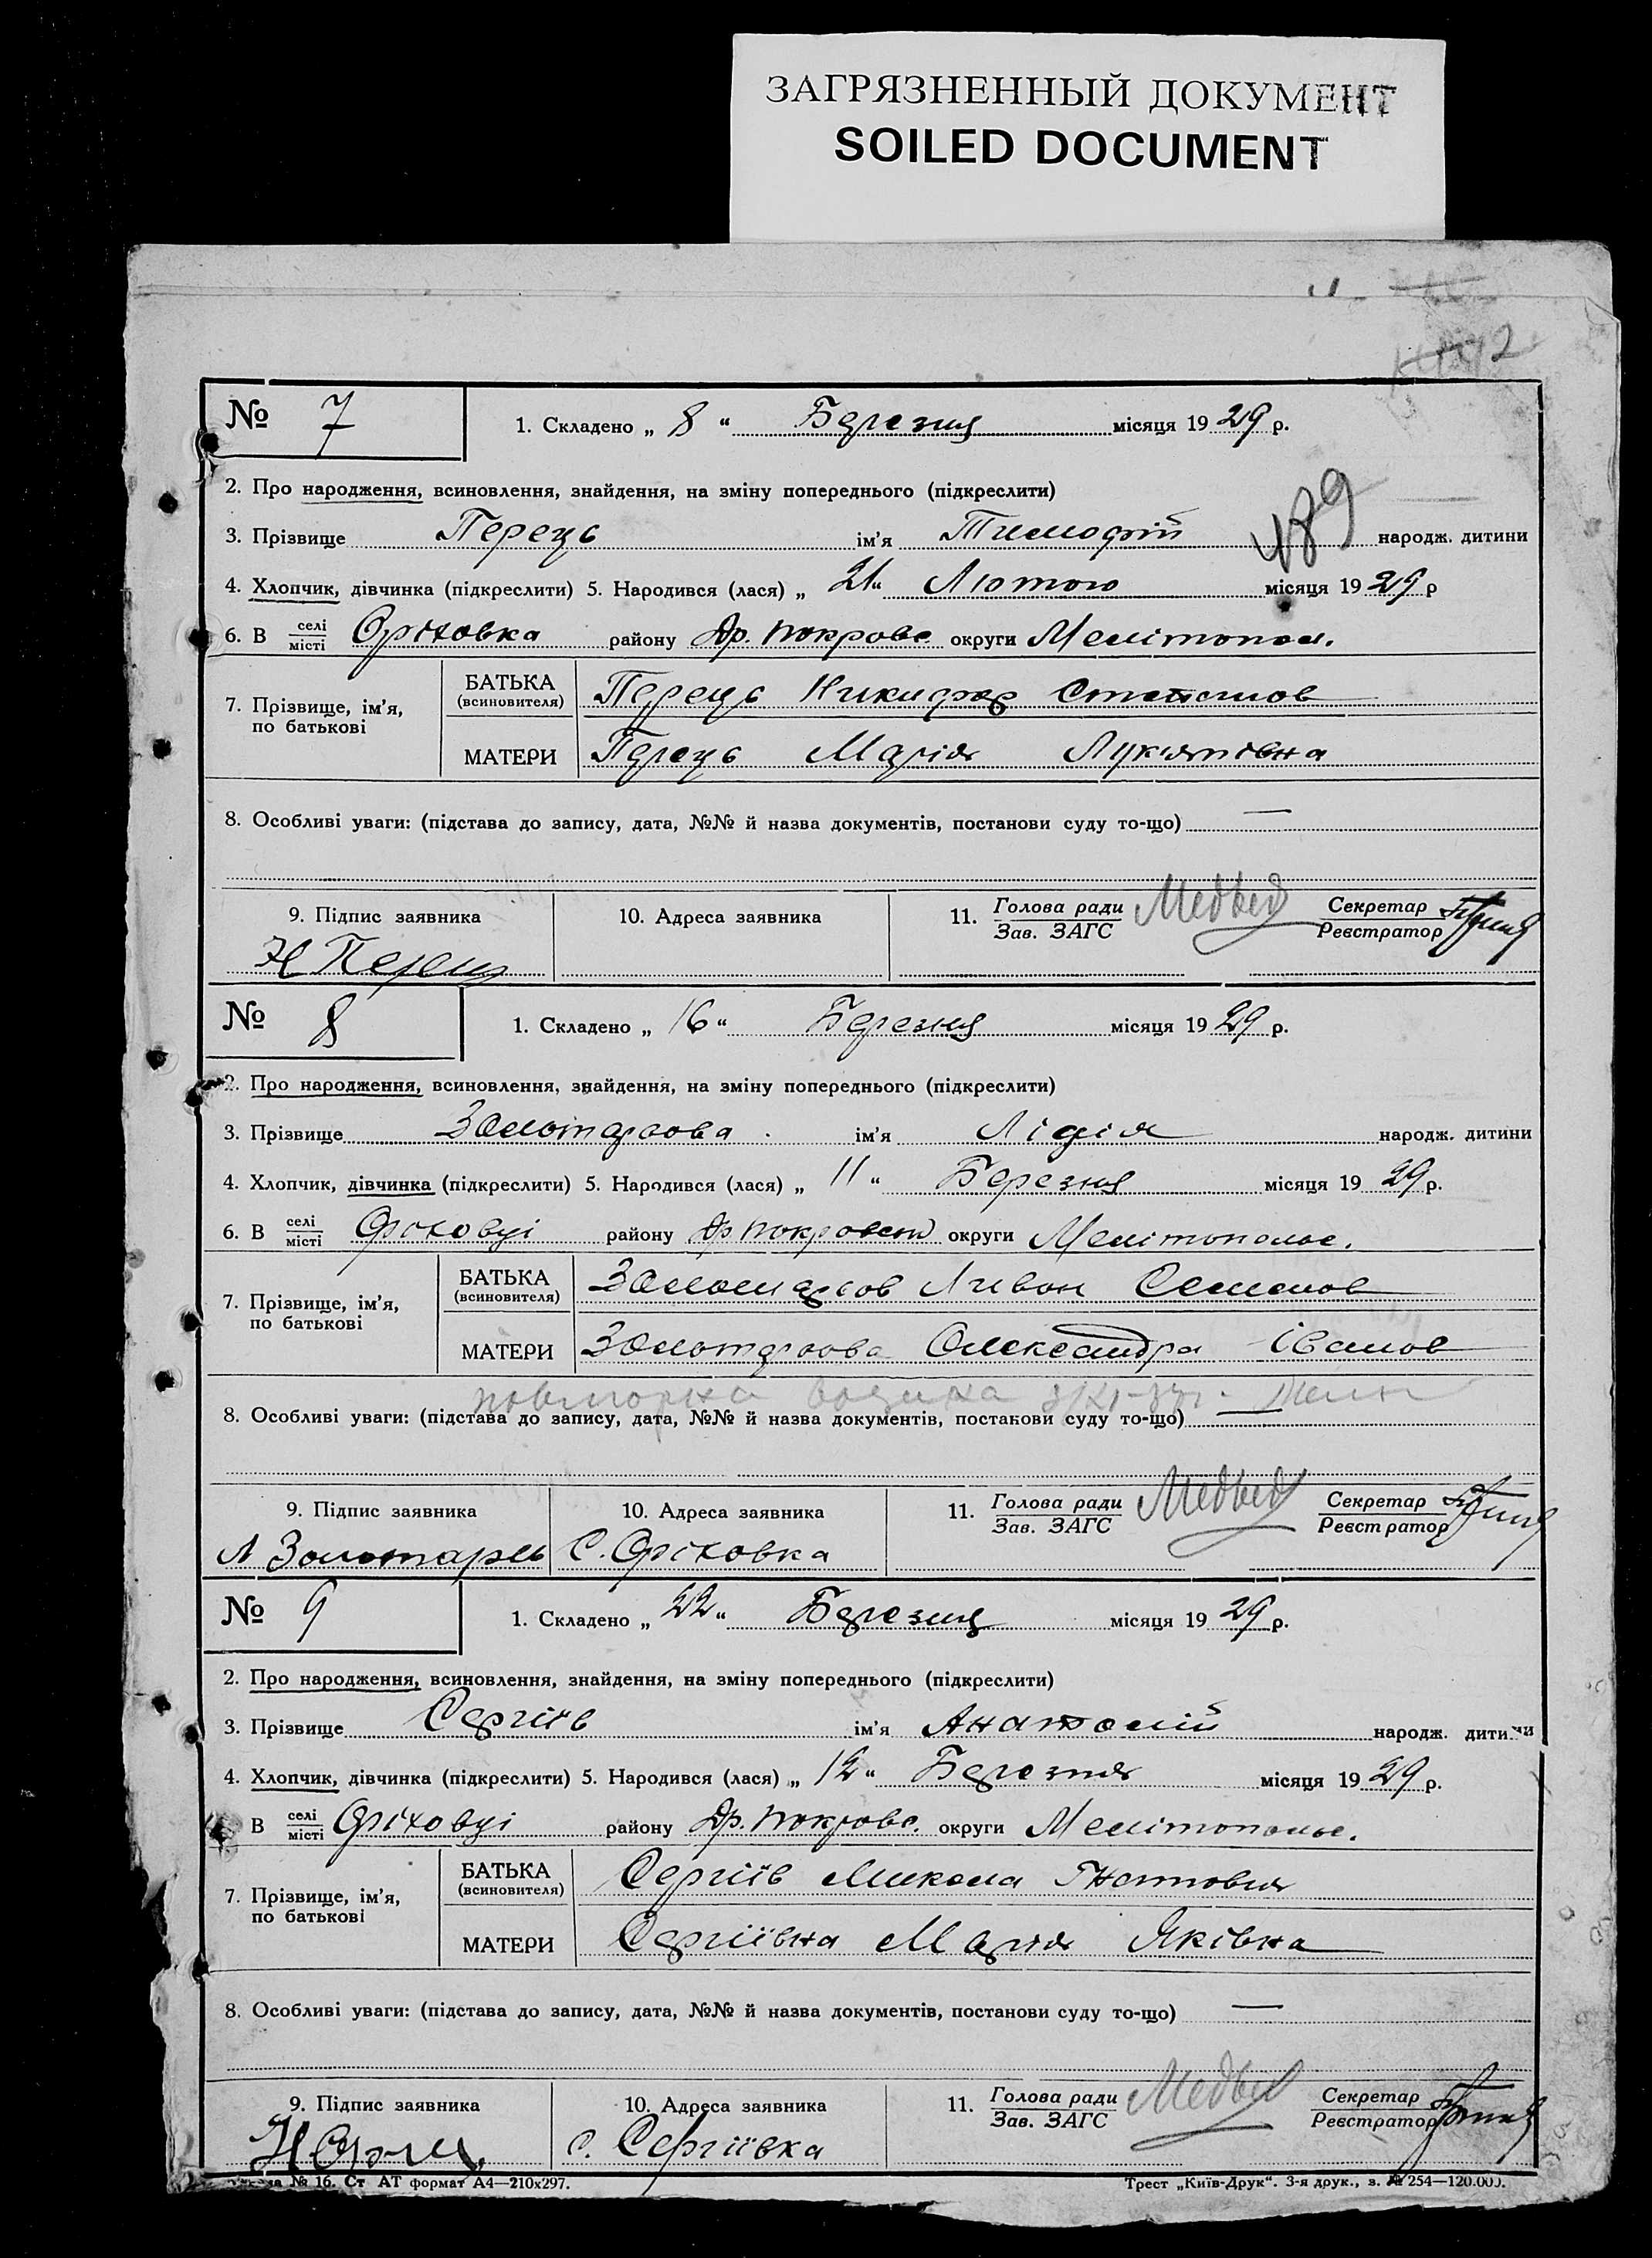 ЗАГРЯЗНЕННЫЙ ДОКУМЕНТ
SOILED DOCUMENT
№ 7
1. Складено „ 8 “ Березня місяця 1929 р.
2. Про народження, всиновлення, знайдення, на зміну попереднього (підкреслити)
489
3. Прізвище Перець ім'я Тимофій народж. дитини
4. Хлопчик, дівчинка (підкреслити) 5. Народився (лася) „ 21 “ Лютого місяця 1929 р
6. В селі/місті Оріховка району Др. Покровс. округи Мелітопол.
7. Прізвище, ім'я, по батькові
БАТЬКА (всиновителя) Перець Никифор Степанов
МАТЕРИ Перець Марія Лук'янівна
8. Особливі уваги: (підстава до запису, дата, №№ й назва документів, постанови суду то-що) —
9. Підпис заявника
10. Адреса заявника
11. Голова ради/Зав. ЗАГС Медвед Секретар/Реєстратор
Н Перець
№ 8
1. Складено „ 16 “ Березня місяця 1929 р.
2. Про народження, всиновлення, знайдення, на зміну попереднього (підкреслити)
3. Прізвище Золотарьова ім'я Лідія народж. дитини
4. Хлопчик, дівчинка (підкреслити) 5. Народився (лася) „ 11 “ Березня місяця 1929 р.
6. В селі/місті Оріховці району Др Покровськ округи Мелітопольс.
7. Прізвище, ім'я, по батькові
БАТЬКА (всиновителя) Золотарьов Ливон Семенов
МАТЕРИ Золотарьова Олександра Іванов
повторка видана
8. Особливі уваги: (підстава до запису, дата, №№ й назва документів, постанови суду то-що) —
9. Підпис заявника
10. Адреса заявника
11. Голова ради/Зав. ЗАГС Медвед Секретар/Реєстратор
Л Золотарев С. Оріховка
№ 9
1. Складено „ 22 “ Березня місяця 1929 р.
2. Про народження, всиновлення, знайдення, на зміну попереднього (підкреслити)
3. Прізвище Сергіїв ім'я Анатолій народж. дитини
4. Хлопчик, дівчинка (підкреслити) 5. Народився (лася) „ 12 “ Березня місяця 1929 р.
В селі/місті Оріховці району Др. Покровс. округи Мелітопольс.
7. Прізвище, ім'я, по батькові
БАТЬКА (всиновителя) Сергіїв Микола Гнатович
МАТЕРИ Сергіївна Марія Яківна
8. Особливі уваги: (підстава до запису, дата, №№ й назва документів, постанови суду то-що) —
9. Підпис заявника
10. Адреса заявника
11. Голова ради/Зав. ЗАГС Медвед Секретар/Реєстратор
с. Сергіївка
№ 16. Ст АТ формат А4—210х297.
Трест „Київ-Друк“. 3-я друк., з. № 254—120.000.